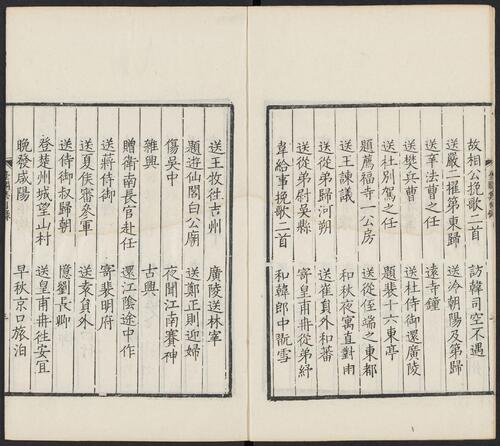 故相公挽歌二首　訪韓司空不遇
送嚴二擢第東歸　送冷朝陽及第歸
送辛法曹之任　遠寺鐘
送樊兵曹　送杜侍御還廣陵
送杜別駕之任　題裴十六東亭
題薦福寺一公房　送從侄端之東都
送王諫議　和秋夜寓直對雨
送從弟歸河朔　送崔員外和蕃
送從弟尉吳縣　寄皇甫冉從弟紓
韋給事挽歌二首　和韓郎中翫雪
送王牧往吉州　廣陵送林宰
題遊仙閣白公廟　送鄭正則迎婦
傷吳中　夜聞江南賽神
雜興　古興
贈衛南長官赴任　還江陰途中作
送蔣侍御　寄裴明府
送夏侯審參軍　送袁員外
送侍御叔歸朝　憶劉長卿
登楚州城望山村　送皇甫冉往安宜
晚發咸陽　早秋京口旅泊